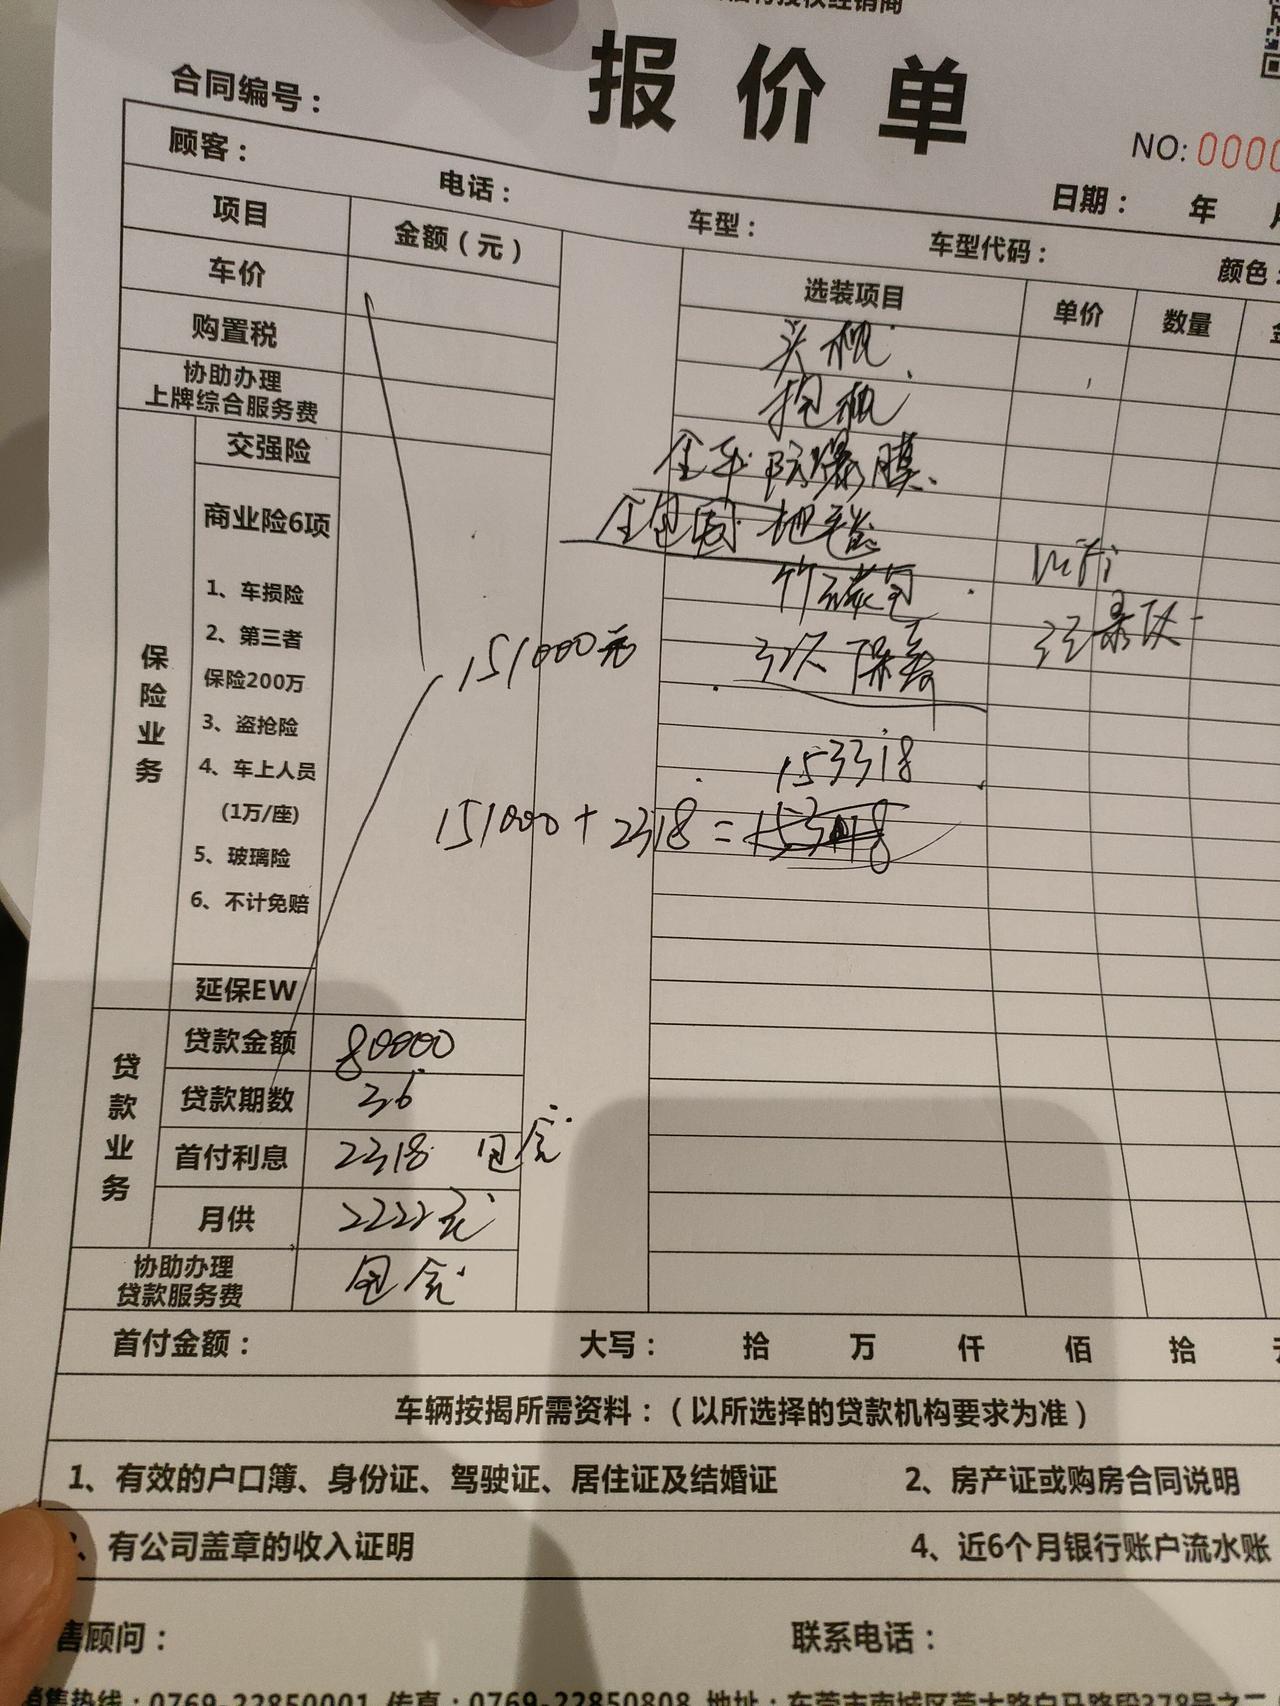 授权经销商
报价单
合同编号：
NO: 0000
顾客：
电话：
车型：
车型代码：
日期： 年
颜色：
项目
金额（元）
选装项目
单价
数量
车价
购置税
协助办理
上牌综合服务费
保险业务
交强险
商业险6项
1、车损险
2、第三者
保险200万
3、盗抢险
4、车上人员
(1万/座)
5、玻璃险
6、不计免赔
延保EW
151000元
头枕
抱枕
全车防爆膜
全包围地毯
竹碳包
WiFi
记录仪
3次保养
153318
151000+2318=
贷款业务
贷款金额 80000
贷款期数 36
首付利息 2318 包含
月供 2222元
协助办理
贷款服务费
包含
首付金额：
大写： 拾 万 仟 佰 拾
车辆按揭所需资料：（以所选择的贷款机构要求为准）
1、有效的户口簿、身份证、驾驶证、居住证及结婚证
2、房产证或购房合同说明
、有公司盖章的收入证明
4、近6个月银行账户流水账
售顾问：
联系电话：
销售热线：0769-22850001 传真：0769-22850808 地址：东莞市南城区莞太路白马路段378号